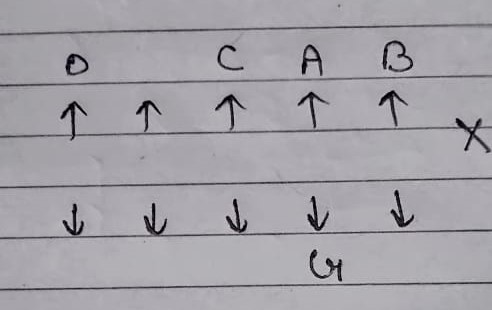 D C A B
↑ ↑ ↑ ↑ ↑
X
↓ ↓ ↓ ↓ ↓
G